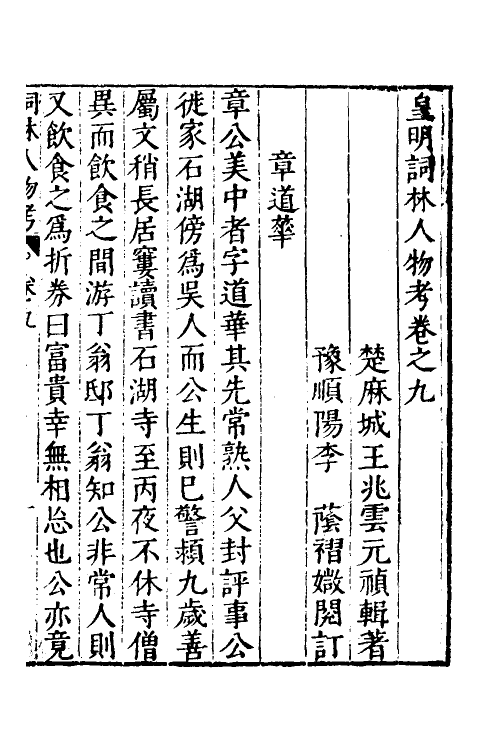 皇明詞林人物考卷之九
楚麻城王兆雲元禎輯著
豫順陽李　蔭襢嬓閱訂
章道華
章公美中者字道華其先常熟人父封評事公
徙家石湖傍爲吳人而公生則已警頴九歲善
屬文稍長居窶讀書石湖寺至丙夜不休寺僧
異而飲食之間游丁翁邸丁翁知公非常人則
又飲食之爲折券曰富貴幸無相忘也公亦竟
詞林人物考　卷之九　一